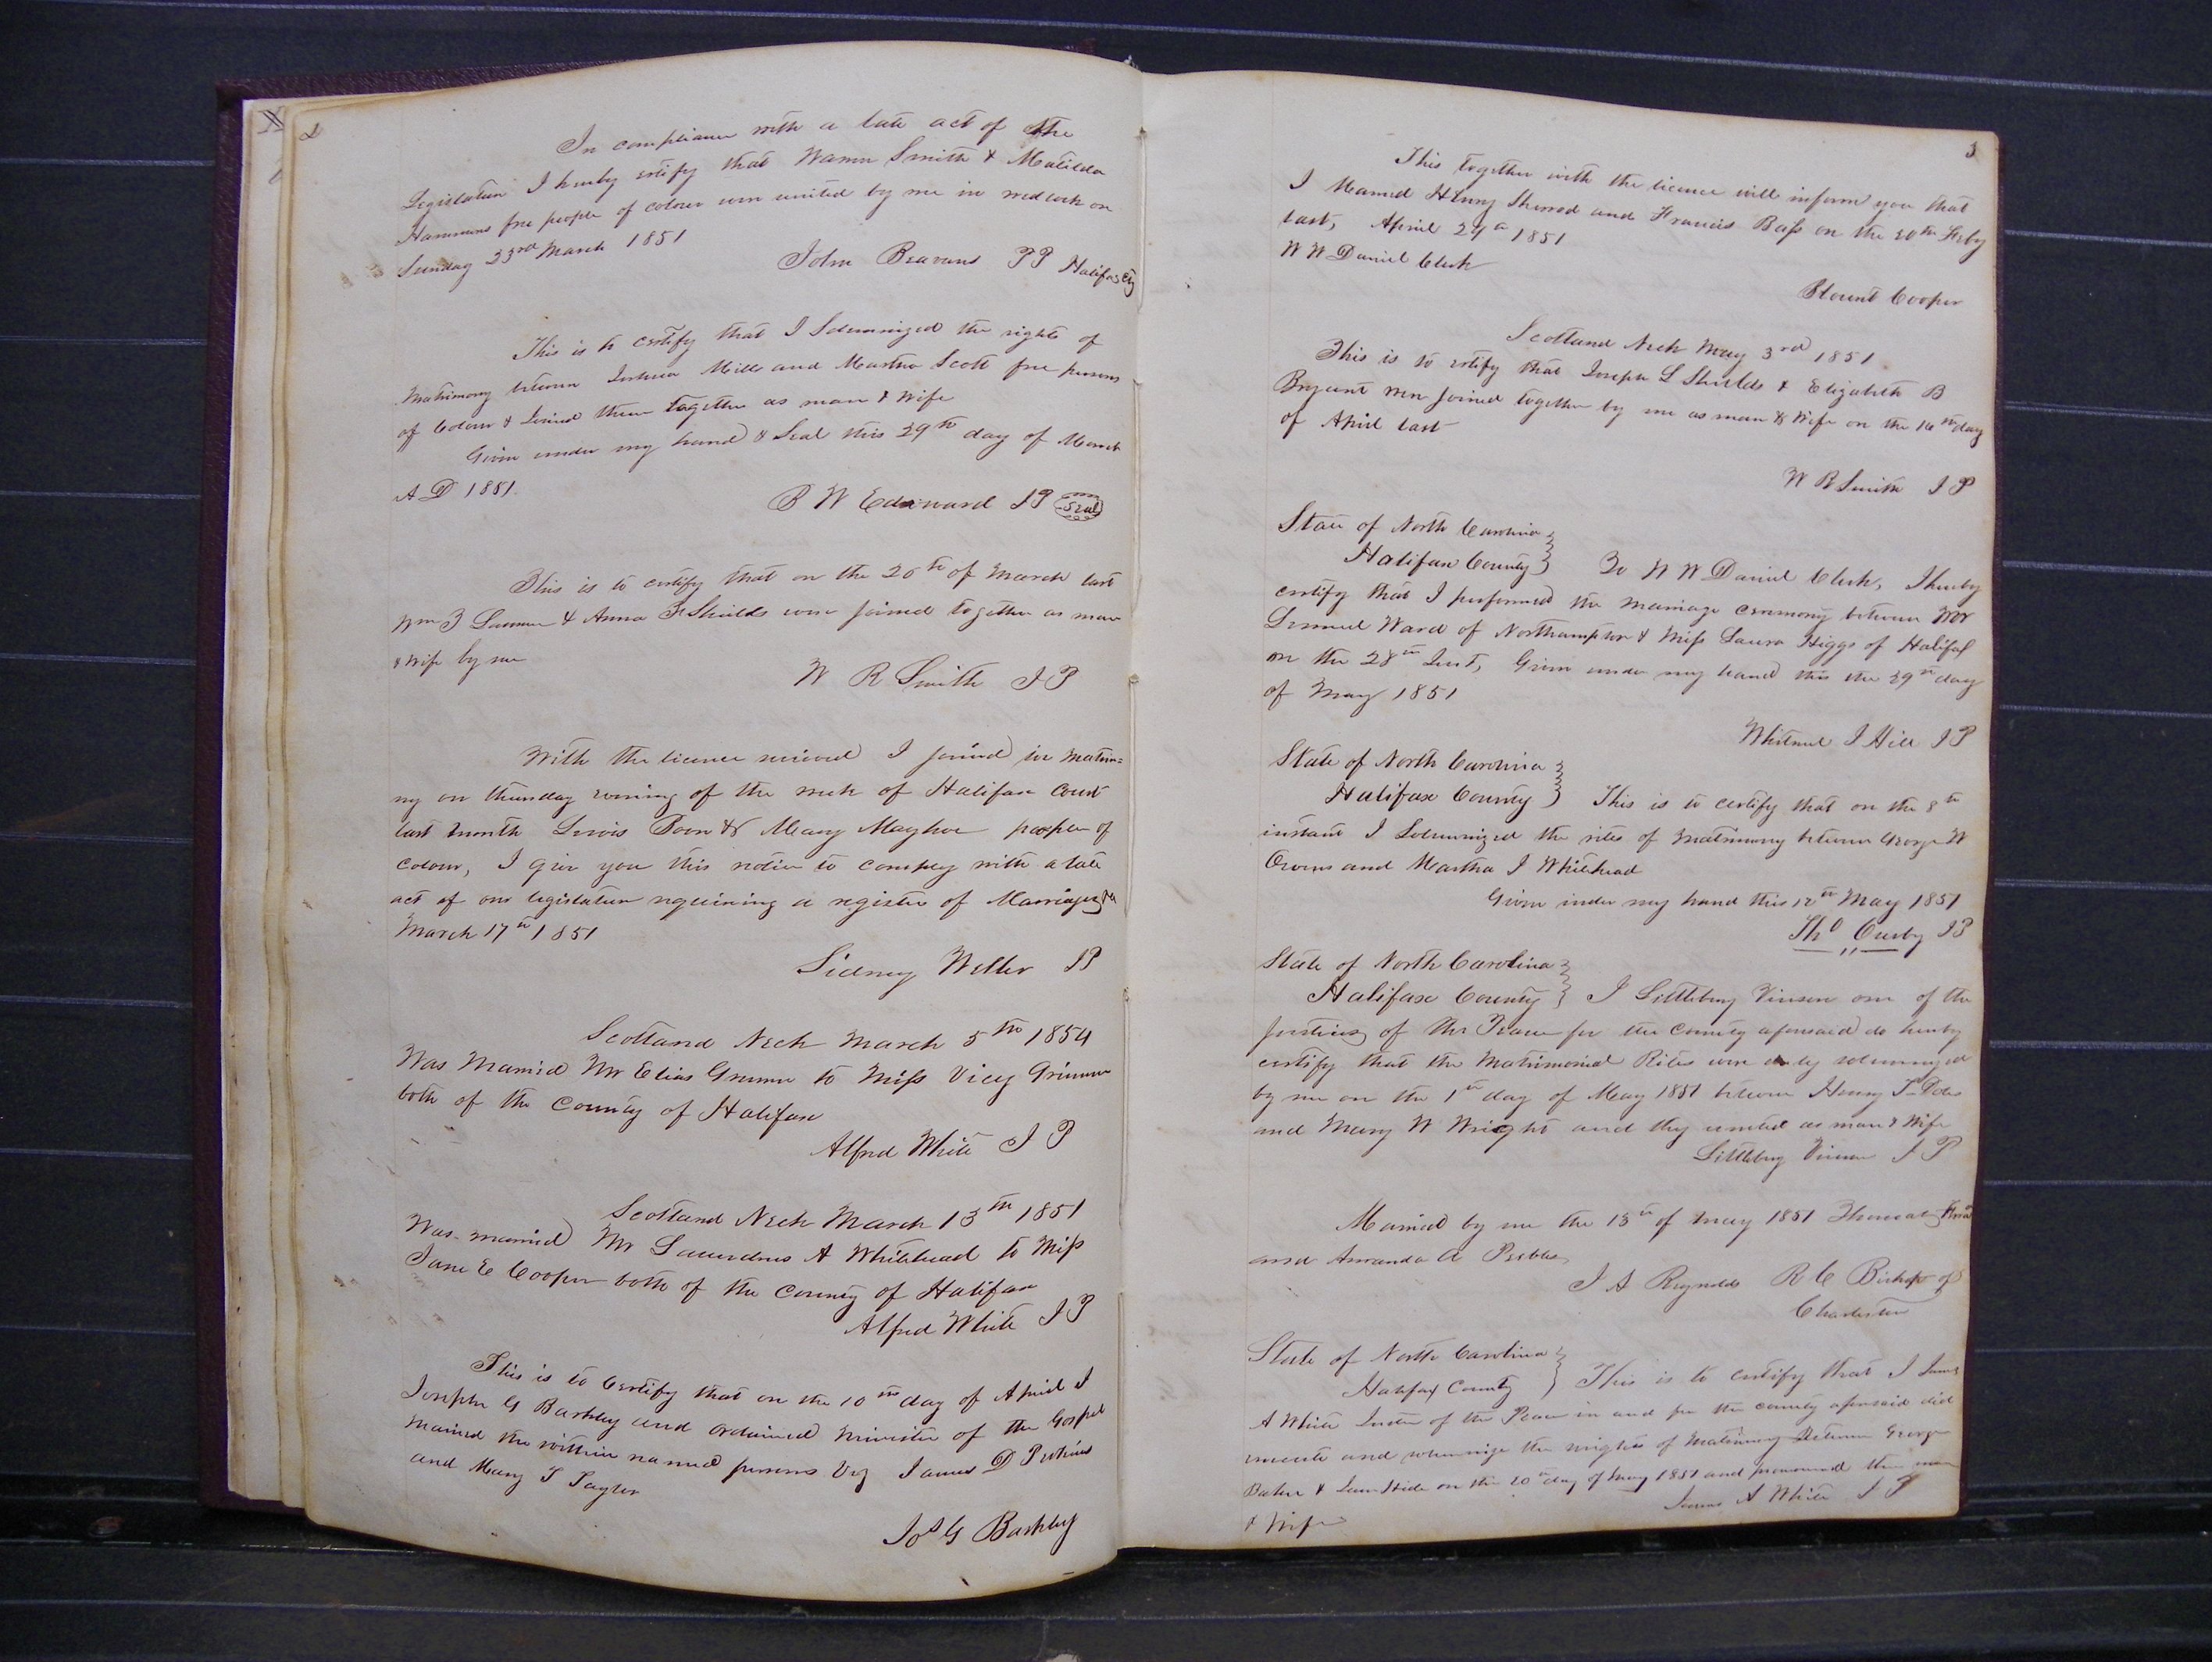 2
In compliance with a late act of the
Legislature I hereby certify that Warren Smith & Matilda
Hammons free people of colour were united by me in wedlock on
Sunday 23rd March 1851
John Beavans JP Halifax Cty
This is to certify that I Solemnized the rights of
Matrimony between Joshua Mills and Martha Scott free persons
of Colour & Joined them together as man & wife
Given under my hand & Seal this 29th day of March
A D 1851.
B W Edaward JP Seal
This is to certify that on the 20th of March last
Wm J & Anna F Shields were joined together as man
& wife by me
W R Smith J P
With the licence recieved I joined in Matrim=
ny on thursday evening of the week of Halifax Court
last month Lewis Boon & Mary Mayhoe people of
colour, I give you this notice to comply with a late
act of our legislature requiring a register of Marriages &c
March 17th 1851
Sidney Weller JP
Scotland Neck March 5th 1854
Was Married Mr Elias Grimmer to Miss Vicey Grimmer
both of the County of Halifax
Alfred White J P
Scotland Neck March 13th 1851
Was married Mr Saunders A Whitehead to Miss
Jane E Cooper both of the County of Halifax
Alfred White J P
This is to Certify that on the 10th day of April I
Joseph G Barkley and ordained minister of the Gospel
married the within named persons Viz James D Perkins
and Mary T Taylor
Jos G Barkley
3
This together with the licence will inform you that
I Married Henry Sherrod and Francis Bass on the 20th Feby
last, April 24th 1851
W W Daniel Clerk
Blount Cooper
Scotland Neck May 3rd 1851
This is to certify that Joseph L Shields & Elizabeth B
Bryant were joined together by me as man & wife on the 16th day
of April last
W R Smith J P
State of North Carolina
Halifax County } To W W Daniel Clerk, I hereby
certify that I performed the marriage ceremony between Mr
Lemuel Ward of Northampton & Miss Laura Higgs of Halifax
on the 28th Inst, Given under my hand this the 29th day
of May 1851
Whitmel J Hill J P
State of North Carolina
Halifax County } This is to certify that on the 8th
instant I Solemnized the rites of matrimony between George W
Owens and Martha J Whitehead
Given under my hand this 12th May 1851
Tho Ousby JP
State of North Carolina
Halifax County } I Littlebery Vinson one of the
justices of the Peace for the County aforesaid do hereby
certify that the Matrimonial Rites were duly solemnized
by me on the 1st day of May 1851 between Henry T
and Mary W Wright and they united as man & wife
Littlebery Vinson J P
Married by me the 13th of May 1851
and Amanda A Peebles
I A Reynolds R C Bishop of
Charleston
State of North Carolina
Halifax County } This is to certify that I James
A White Justice of the Peace in and for the county aforesaid did
execute and solemnize the rights of Matrimony Between George
Baker & on the 20th day of May 1851 and pronounced them man
James A White J P
& Wife